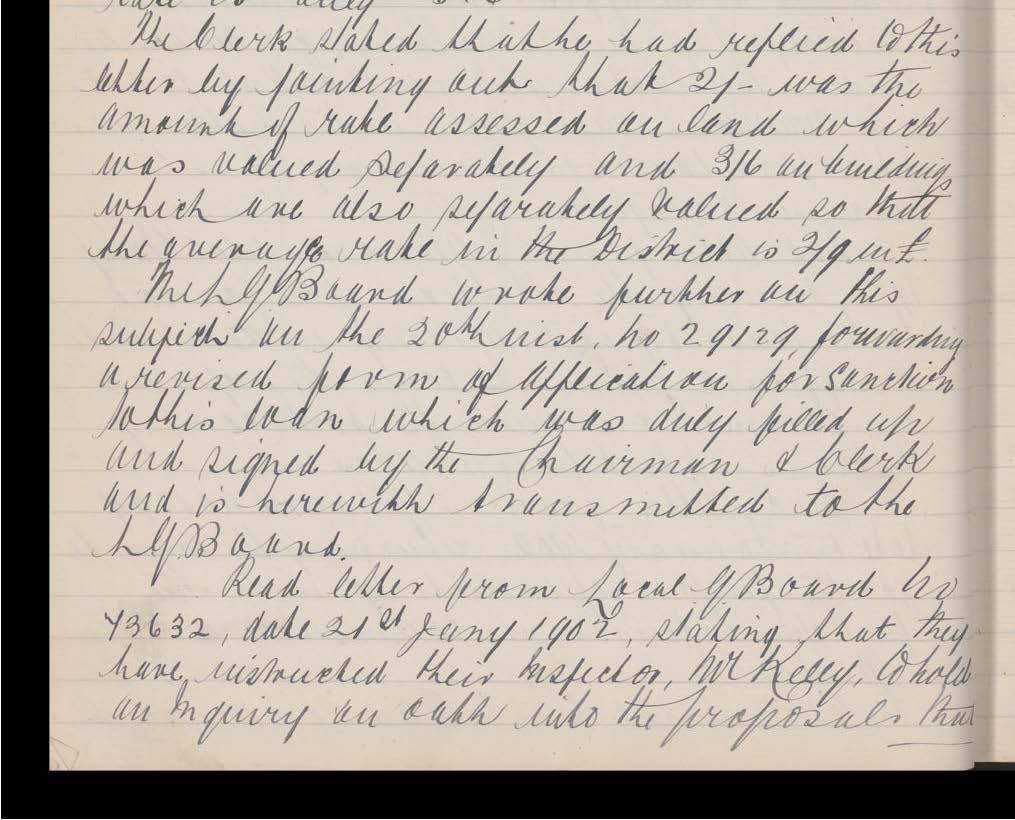 The Clerk stated that he had replied to this
letter by pointing out that 2/- was the
amount of rate assessed on land which
was valued separately and 3/6 on buildings
which are also separately valued so that
the average rate in the District is 2/9 in £.
The L G Board wrote further on this
subject on the 20th inst, no 29129, forwarding
a revised form of application for sanction
to this loan which was duly filled up
and signed by the Chairman & Clerk
and is herewith transmitted to the
L G Board.
Read letter from Local G Board No
43632, date 21st Jany 1902, stating that they
have instructed their Inspector, Mr Kelly, to hold
an Inquiry on oath into the proposals that